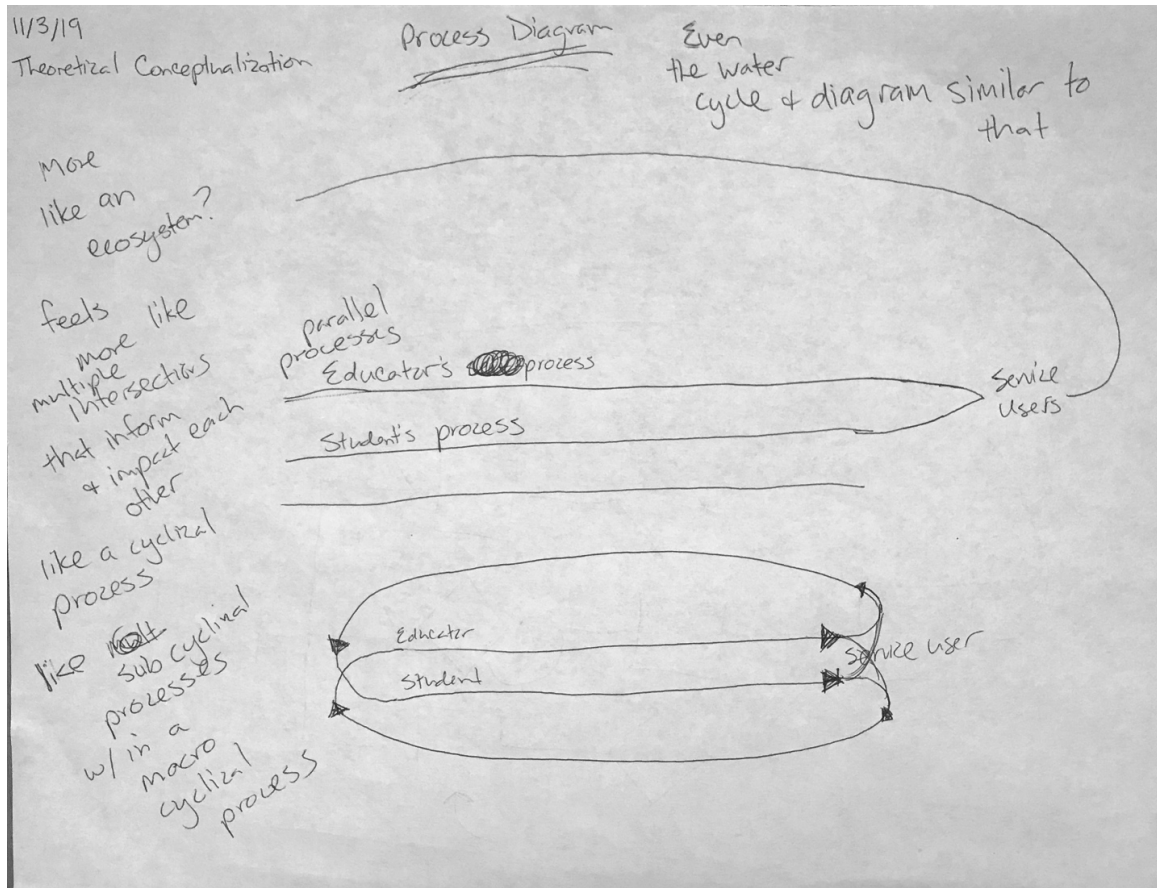 11/3/19
Theoretical Conceptualization
Process Diagram
Even
the water
cycle & diagram similar to
that
more
like an
ecosystem?
feels
more like
multiple
intersections
that inform
& impact each
other
like a cyclical
process
like
sub cyclical
processes
w/in a
macro
cyclical
process
parallel
processes
Educator's process
Student's process
Service
Users
Educator
Student
Service user